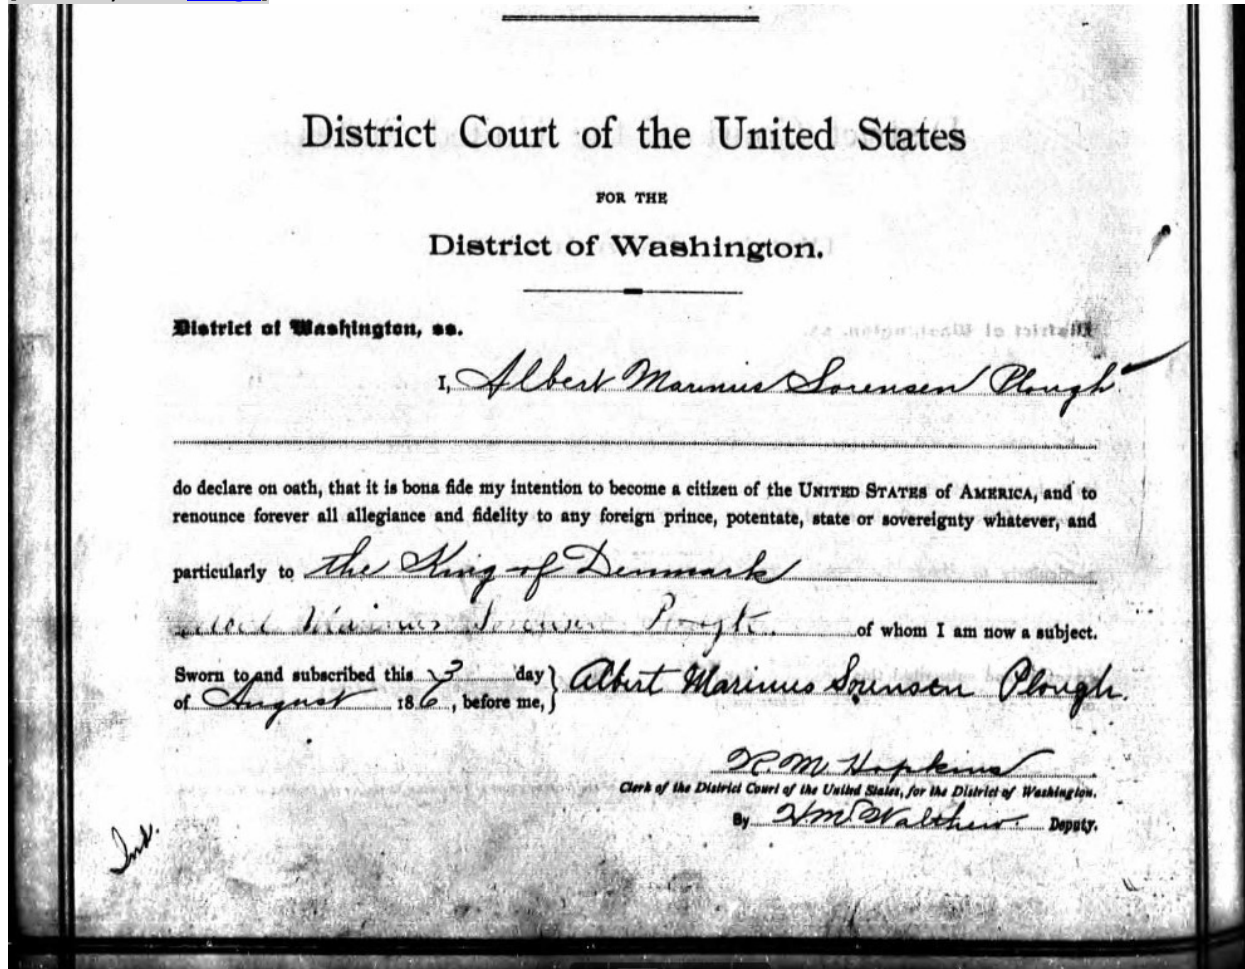 District Court of the United States
FOR THE
District of Washington.
District of Washington, ss.
I, Albert Marinus Sorensen Plough
do declare on oath, that it is bona fide my intention to become a citizen of the UNITED STATES of AMERICA, and to
renounce forever all allegiance and fidelity to any foreign prince, potentate, state or sovereignty whatever, and
particularly to the King of Denmark
Marinus Sorensen of whom I am now a subject.
Sworn to and subscribed this 3 day
of August 186, before me,
Albert Marinus Sorensen Plough.
R. M. Hopkins
Clerk of the District Court of the United States, for the District of Washington.
By H. M. Walthew Deputy.
Ind.